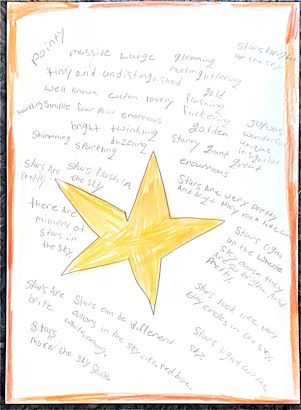 pointy
massive Large gleaming
Stars bright
up the sky
tiny and undistinguished
glittering
well known golden lovely flashing
gold
flickering
simple four five enormous
yellow
wonderful
bright twinkling
golden unique
Shimmering dazzling
starry giant great
sparkling
enourmous
Stars Are
Pretty in
Stars flashing
the sky
Stars Are very pretty
And bright they look like
there Are
millions of
stars in
the sky.
Stars light
up the whole
sky cause they
Are so bright And
pretty
Stars look like very
tiny circles in the sky.
Stars Are
brite
Stars can be different
colors in the sky like red blue
white orange
Stars light up the
sky.
Stars
make the sky shine